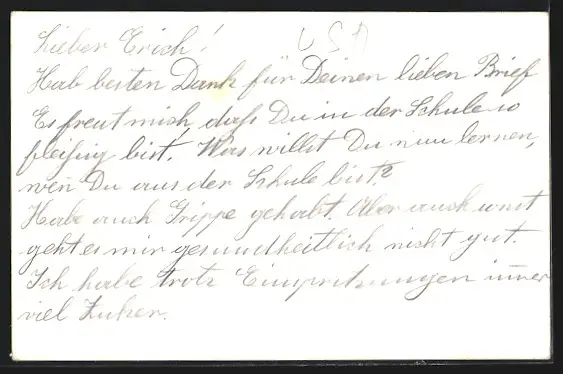 Lieber Erich!
USA
Hab besten Dank für Deinen lieben Brief
Es freut mich, daß Du in der Schule so
fleißig bist. Was willst Du nun lernen,
wen̄ Du aus der Schule bist?
Habe auch Grippe gehabt. Aber auch sonst
geht es mir gesundheitlich nicht gut.
Ich habe trotz Einspritzungen im̄er
viel Zuker.